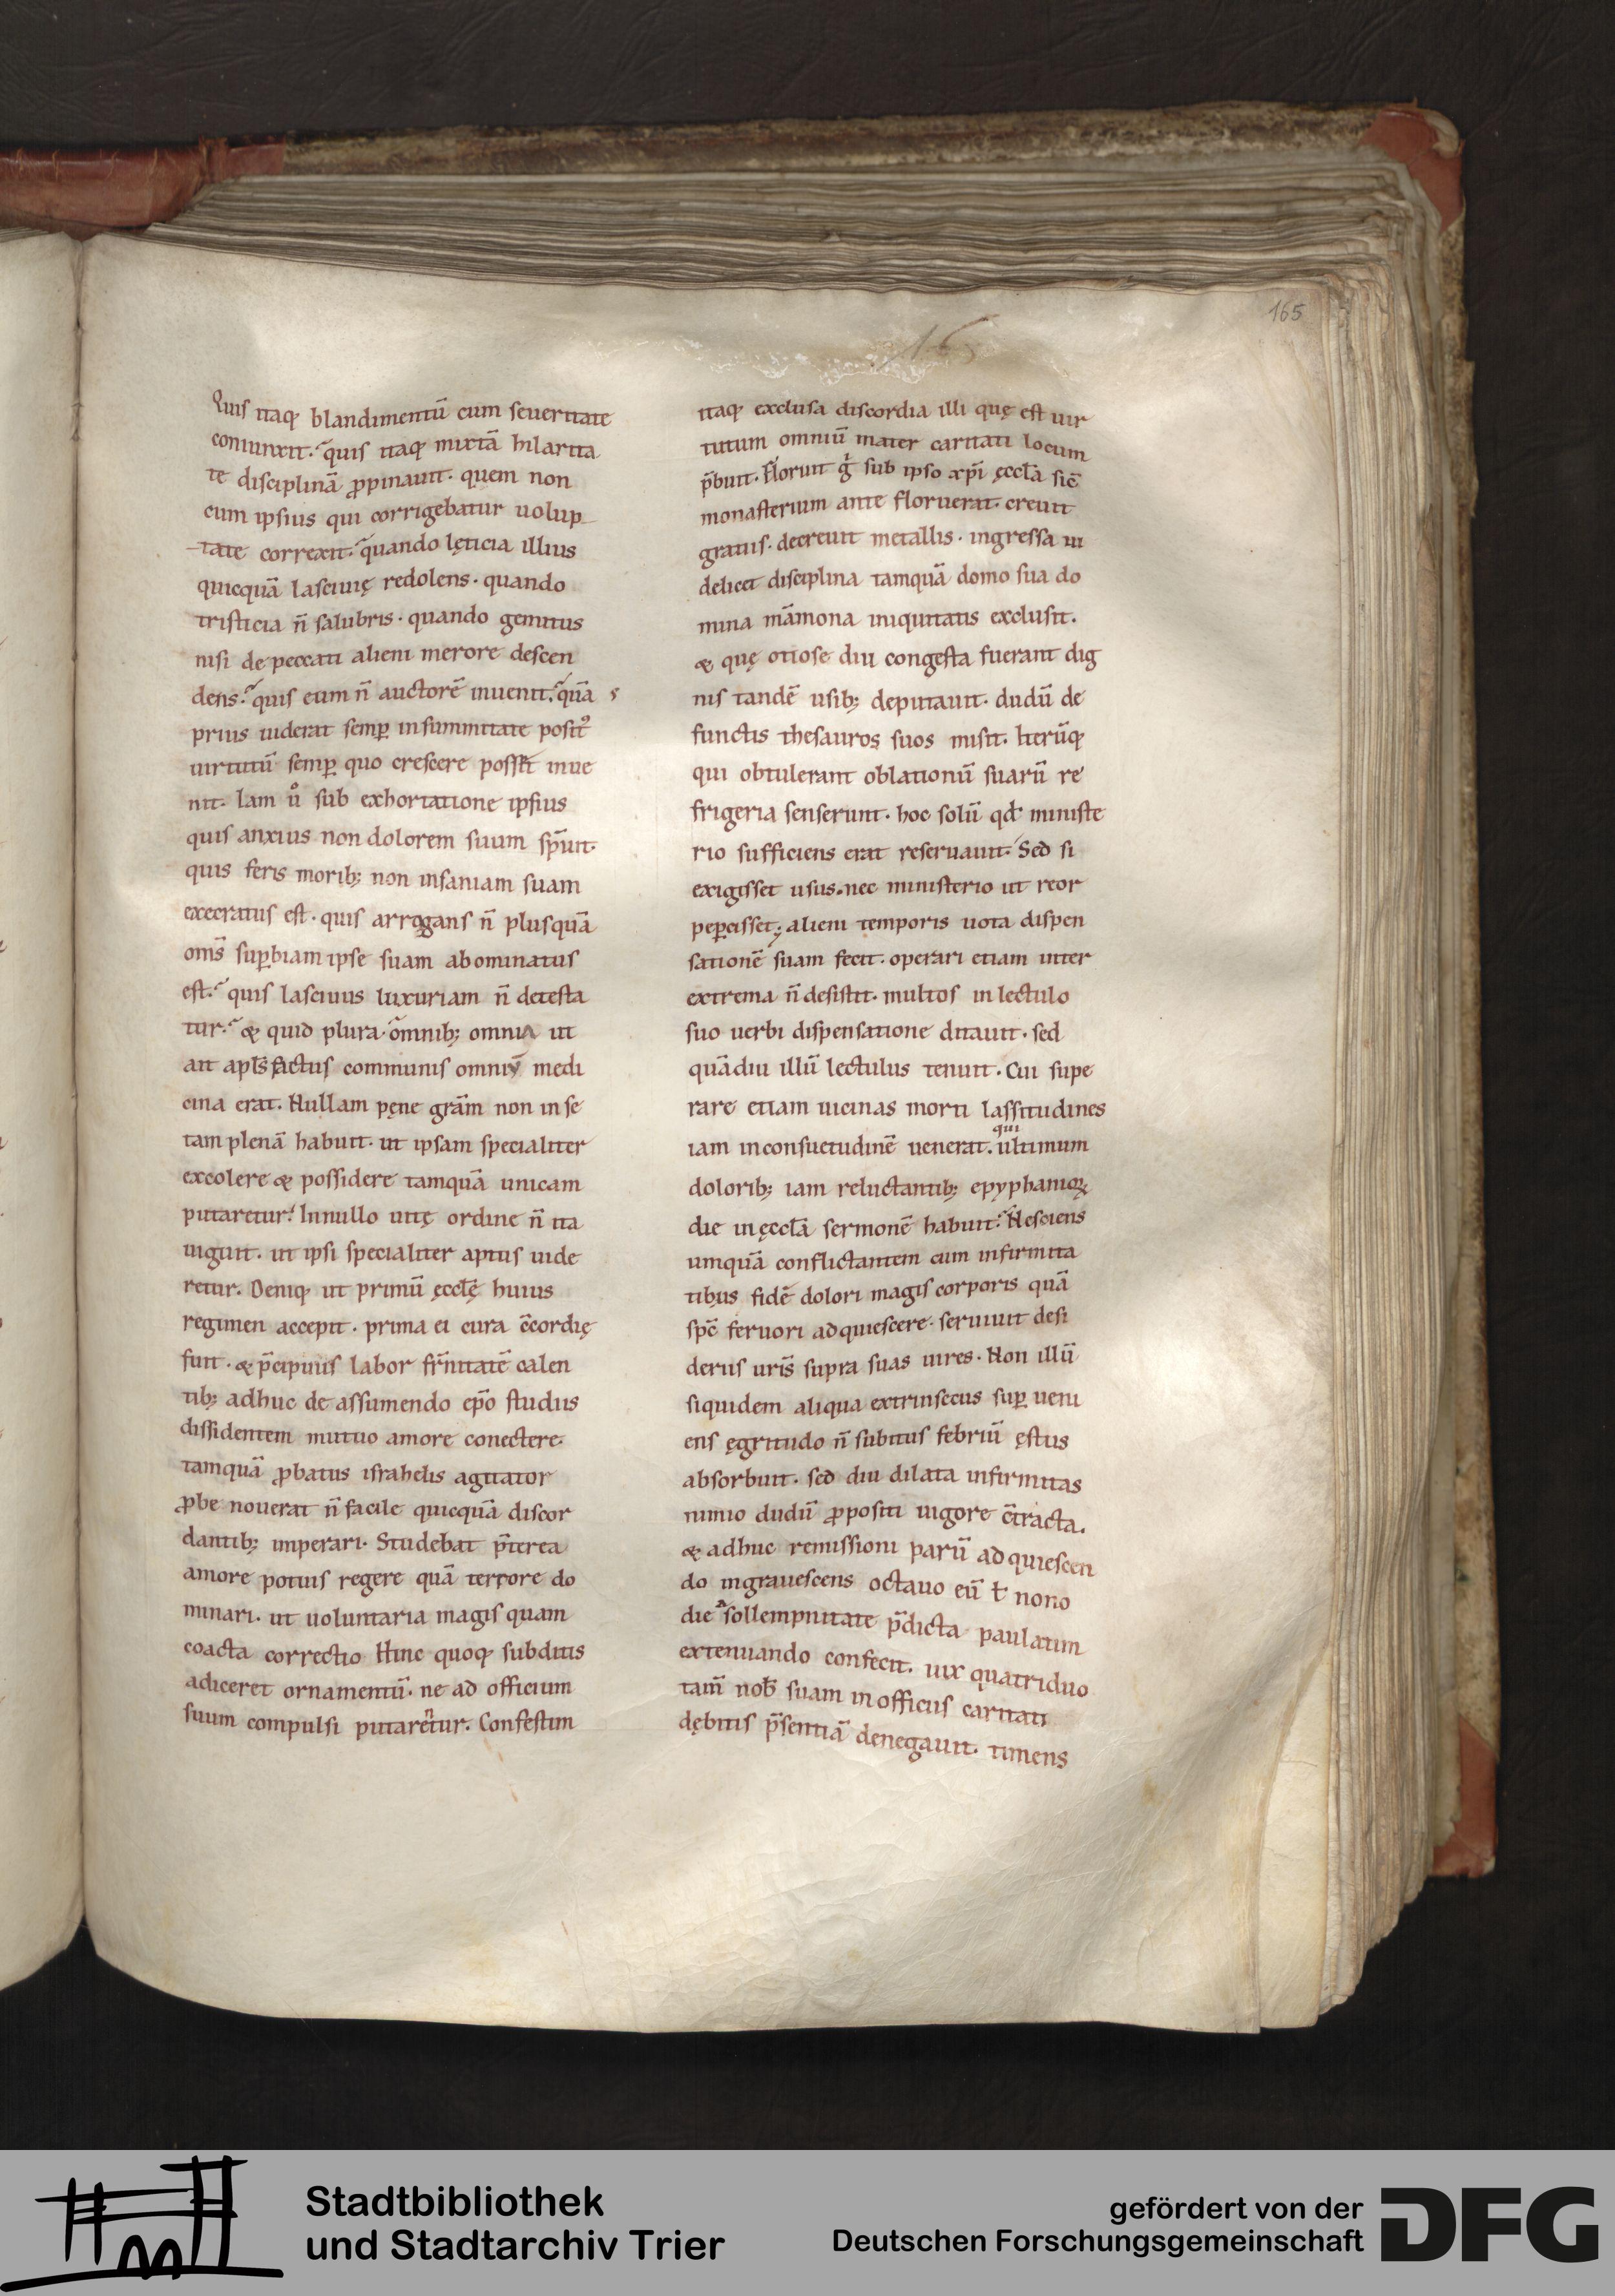 165
165
Quis itaq; blandimentū cum seueritate
coniunxit. quis itaq; mixtā hilarita
te disciplinā ꝓpinauit. quem non
cum ipsius qui corrigebatur uolup
tate correxit. quando lęticia illius
quicquā lasciuię redolens. quando
tristicia n̄ salubris. quando gemitus
nisi de peccati alieni merore descen
dens. quis eum n̄ auctorē inuenit. quā
prius uiderat semꝑ in summitate posit᷒
uirtutū semꝑ quo crescere posset inue
nit. Iam ů sub exhortatione ipsius
quis anxius non dolorem suum sp̄uit.
quis feris morib; non insaniam suam
execratus est. quis arrogans n̄ plusquā
om̄s suꝑbiam ipse suam abominatus
est. quis lasciuus luxuriam n̄ detesta
tur. & quid plura. omnib; omnia ut
ait apl̄s factus communis omniū medi
cina erat. Nullam pęne gr̄am non in se
tam plenā habuit. ut ipsam specialiter
excolere & possidere tamquā unicam
putaretur. In nullo uitę ordine n̄ ita
uiguit. ut ipsi specialiter aptus uide
retur. Deniq; ut primū ęccl̄ę huius
regimen accepit. prima ei cura c̄cordię
fuit. & p̄cipuus labor fr̄nitatē calen
tib; adhuc de assumendo ep̄o studiis
dissidentem mutuo amore conectere.
tamquā ꝓbatus israhelis agitator
ꝓbe nouerat n̄ facile quicquā discor
dantib; imperari. Studebat p̄terea
amore potius regere quā terrore do
minari. ut uoluntaria magis quam
coacta correctio Hinc quoq; subditis
adiceret ornamentū. ne ad officium
suum compulsi putarētur. Confestim
itaq; exclusa discordia illi quę est uir
tutum omniū mater caritati locum
p̄buit. Floruit g̊ sub ipso xp̄i ęccl̄a sic̄
monasterium ante floruerat. creuit
gratiis. decreuit metallis. ingressa ui
delicet disciplina tamquā domo sua do
mina māmona iniquitatis exclusit.
& quę otiose diu congesta fuerant dig
nis tandē usib; deputauit. dudū de
functis thesauros suos misit. Iterūq;
qui obtulerant oblationū suarū re
frigeria senserunt. hoc solū qd̄ ministe
rio sufficiens erat reseruauit. Sed si
exigisset usus. nec ministerio ut reor
peꝑcisset; alieni temporis uota dispen
sationē suam fecit. operari etiam inter
extrema n̄ desistit. multos in lectulo
suo uerbi dispensatione ditauit. sed
quādiu illū lectulus tenuit. Cui supe
rare etiam uicinas morti lassitudines
iam in consuetudinē uenerat. qui ultimum
dolorib; iam reluctantib; epyphanioꝝ
die in ęccl̄a sermonē habuit. Nesciens
umquā conflictantem cum infirmita
tibus fidē dolori magis corporis quā
spc̄ feruori adquiescere. seruiuit desi
deriis uris̄ supra suas uires. Non illū
siquidem aliqua extrinsecus suꝑ ueni
ens ęgritudo n̄ subitus febriū ęstus
absorbuit. sed diu dilata infirmitas
nimio dudū ꝓpositi uigore c̄tracta.
& adhuc remissioni parū adquiescen
do ingrauescens octauo eū ł nono
die a sollempnitate p̄dicta paulatim
extenuando confecit. uix quatriduo
tam̄ nob̄ suam in officiis caritati
dębitis p̄sentiā denegauit. timens
Stadtbibliothek
und Stadtarchiv Trier
gefördert von der
Deutschen Forschungsgemeinschaft
DFG